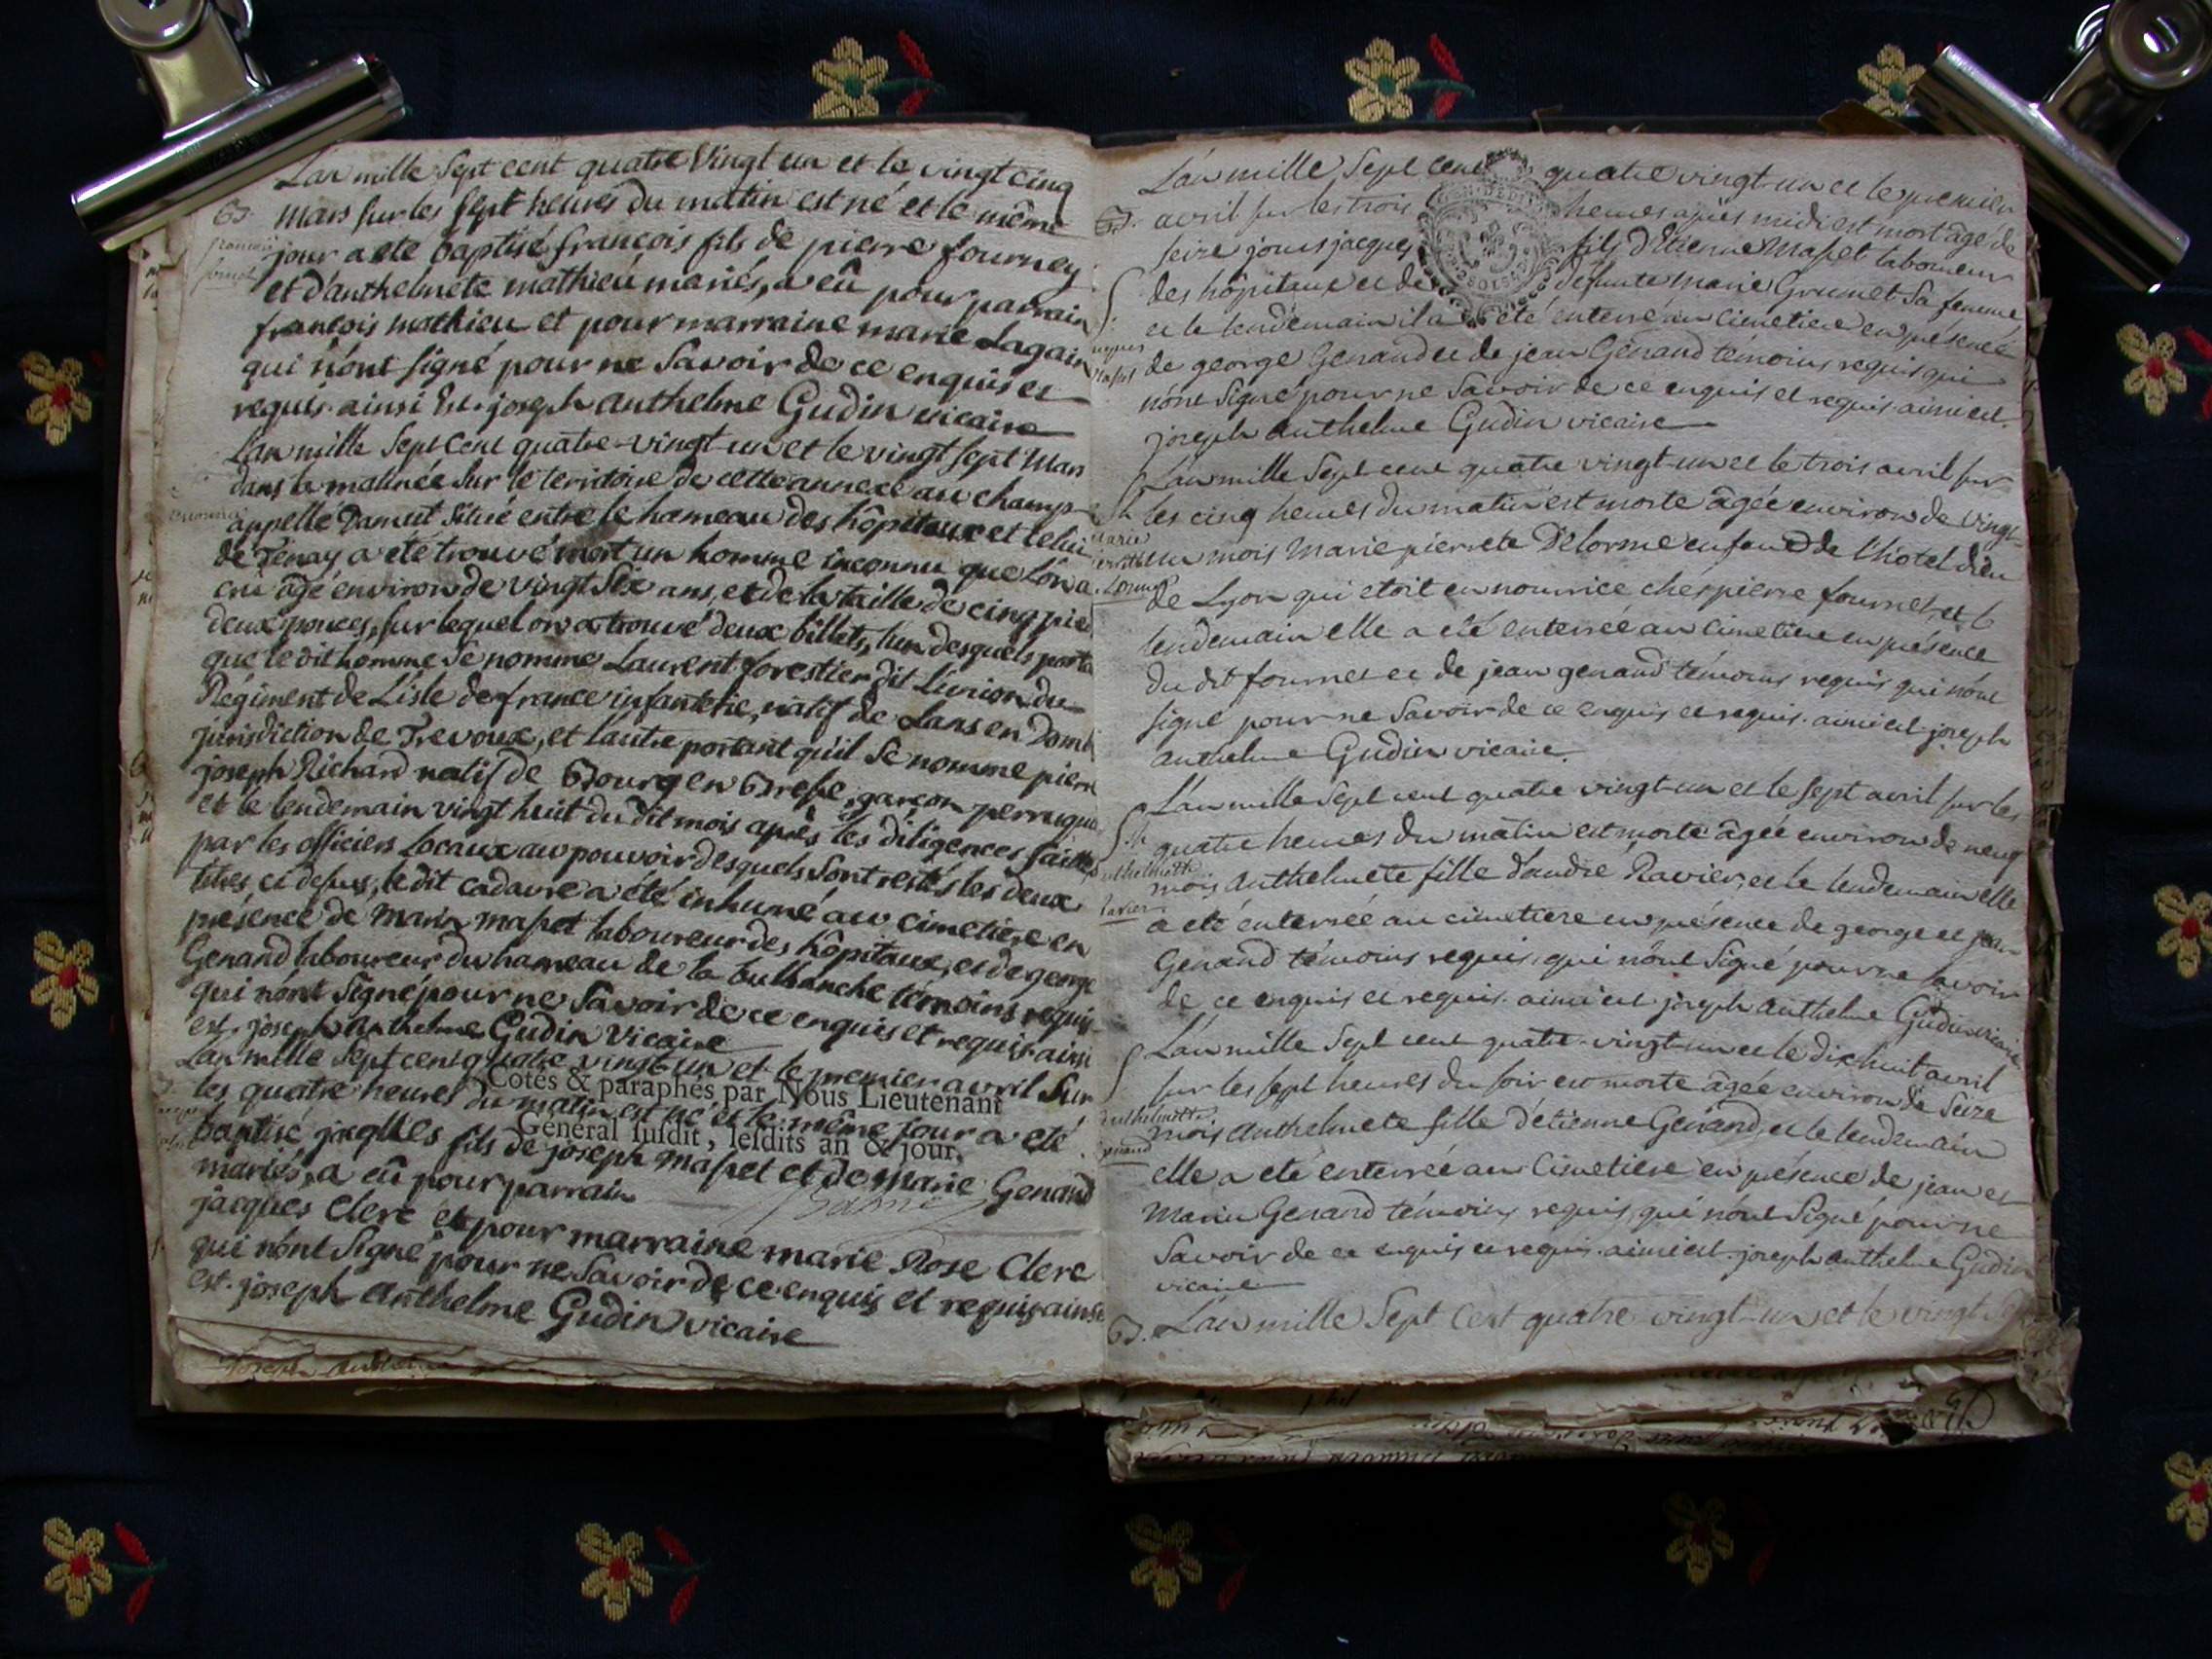 L'an mille Sept cent quatre Vingt un et le vingt cinq
B. mars sur les sept heures du matin est né et le même
jour a eté baptisé francois fils de pierre fourney
et d'anthelmete mathieu mariés, a eû pour parrain
francois mathieu et pour marraine marie Lagain
qui n'ont signé pour ne Savoir de ce enquis et
requis. ainsi Est. joseph anthelme Gudin vicaire
L'an mille Sept Cent quatre-vingt-un et le vingt sept Mars
dans la matinée Sur le territoire de cette annexe au champ
appellé Dameit Situé entre le hameau des hôpitaux et celui
de Tenay a eté trouvé mort un homme inconnu que l'on a
crû agé environ de vingt Six ans, et de la taille de cinq pie
deux pouces, sur lequel on a trouvé deux billets, l'un desquels porta
que le dit homme Se nomme Laurent forestier dit L'union du
Régiment de L'isle de france infanterie, natif de Lans en Domb
jurisdiction de Trevoux, et l'autre portant qu'il Se nomme pierre
joseph Richard natif de Bourg en Bresse, garçon perruqu
et le lendemain vingt huit du dit mois après les diligences faites
par les officiers Locaux au pouvoir desquels Sont restés les deux
billets ci dessus, le dit cadavre a été inhumé au cimetiere en
présence de Marin masset laboureur des hôpitaux, et de george
Genand laboureur du hameau de la bulbanche témoins requis
qui n'ont Signé pour ne Savoir de ce enquis et requis. ainsi
est. joseph anthelme Gudin Vicaire
L'an mille Sept cent quatre vingt-un et le premier avril Sur
Cotés & paraphés par Nous Lieutenant
les quatre heures du matin est né et le même jour a eté
Général susdit, lesdits an & jour.
baptisé jacques fils de joseph masset et de marie Genand
mariés, a eû pour parrain
jacques Clerc et pour marraine marie Rose Clerc
qui n'ont Signé pour ne Savoir de ce enquis et requis. ainsi
est. joseph anthelme Gudin vicaire
L'an mille Sept cent quatre vingt-un et le premier
B. avril sur les trois heures après midi est mort agé de
seize jours jacques fils d'Etienne Masset laboureur
des hôpitaux et de defunte marie Grumet Sa femme
et le lendemain il a été enterré au cimetiere en présence
de george Genand et de jean Genand témoins requis qui
n'ont Signé pour ne Savoir de ce enquis et requis. ainsi est.
joseph anthelme Gudin vicaire
L'an mille Sept cent quatre vingt-un et le trois avril sur
les cinq heures du matin est morte âgée environ de vingt-
un mois Marie pierrete Delorme enfant de l'hotel dieu
de Lyon qui etoit en nourrice chés pierre fournet, et le
lendemain elle a eté enterrée au cimetiere en présence
du dit fournet et de jean genand témoins requis qui n'ont
signé pour ne Savoir de ce enquis et requis. ainsi est. joseph
anthelme Gudin vicaire.
L'an mille Sept cent quatre vingt-un et le sept avril sur les
quatre heures du matin est morte âgée environ de neuf
anthelmette mois anthelmete fille d'andré Ravier, et le lendemain elle
a eté enterrée au cimetiere en présence de george et jean
Genand témoins requis, qui n'ont Signé pour ne Savoir
de ce enquis et requis. ainsi est. joseph anthelme Gudin vicaire
L'an mille Sept cent quatre-vingt-un et le dix huit avril
sur les sept heures du soir est morte âgée environ de Seize
anthelmette mois anthelmete fille d'etienne Genand, et le lendemain
elle a eté enterrée au Cimetiere en présence de jean et
Marin Genand témoins requis, qui n'ont Signé pour ne
Savoir de ce enquis et requis. ainsi est. joseph anthelme Gudin
vicaire
B. L'an mille Sept Cent quatre vingt-un et le vingt